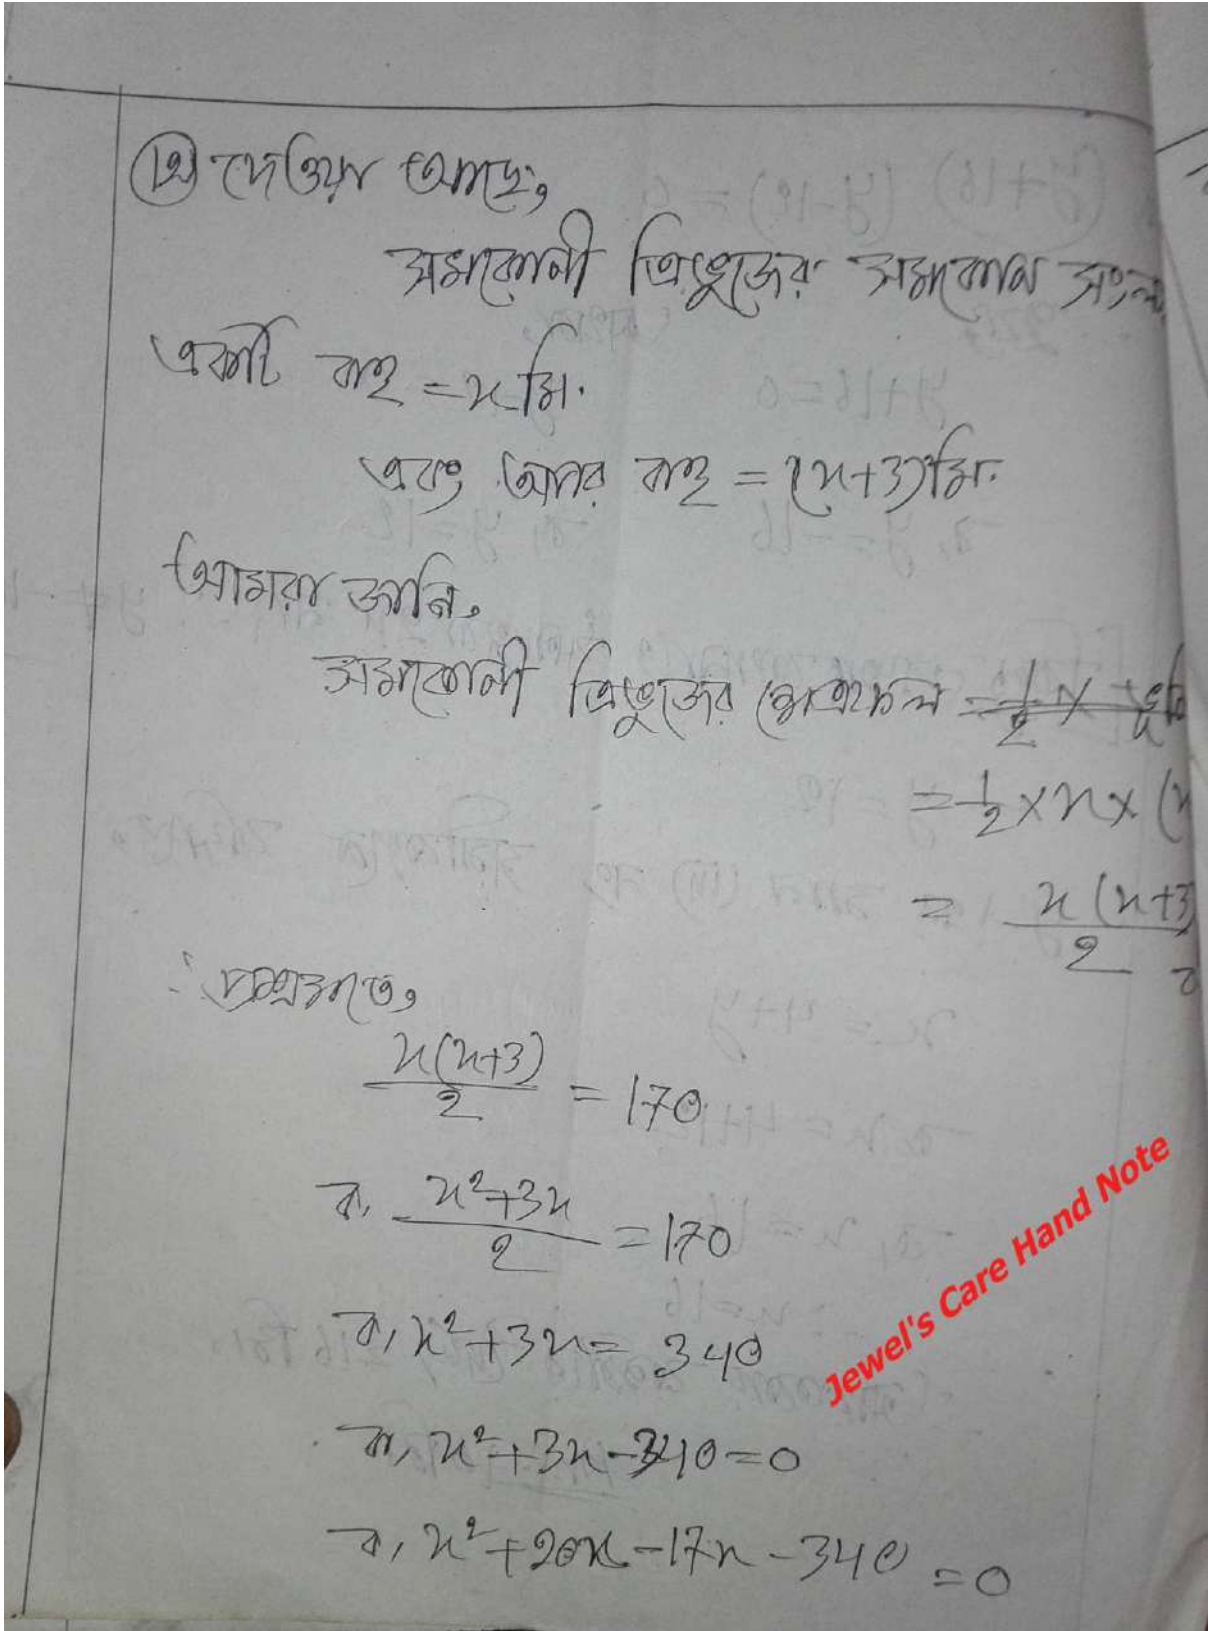 দেওয়া আছে,
সমকোনী ত্রিভুজের সমকোন সংল
একটি বাহু = x মি.
এবং অপর বাহু = (x+3) মি.
আমরা জানি,
সমকোনী ত্রিভুজের ক্ষেত্রফল
= 1/2 × x × (x
= x(x+3)/2
প্রশ্নমতে,
x(x+3)/2 = 170
বা, x²+3x/2 = 170
বা, x²+3x = 340
বা, x²+3x-340=0
বা, x²+20x-17x-340 =0
Jewel's Care Hand Note